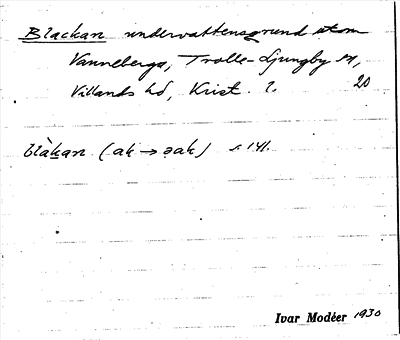 Blackan undervattensgrund utom
Vanneberga, Trolle-Ljungby sn,
Villands hd, Krist. l. 20
blàkan (ak → ɔak) s. 141.
Ivar Modéer 1930